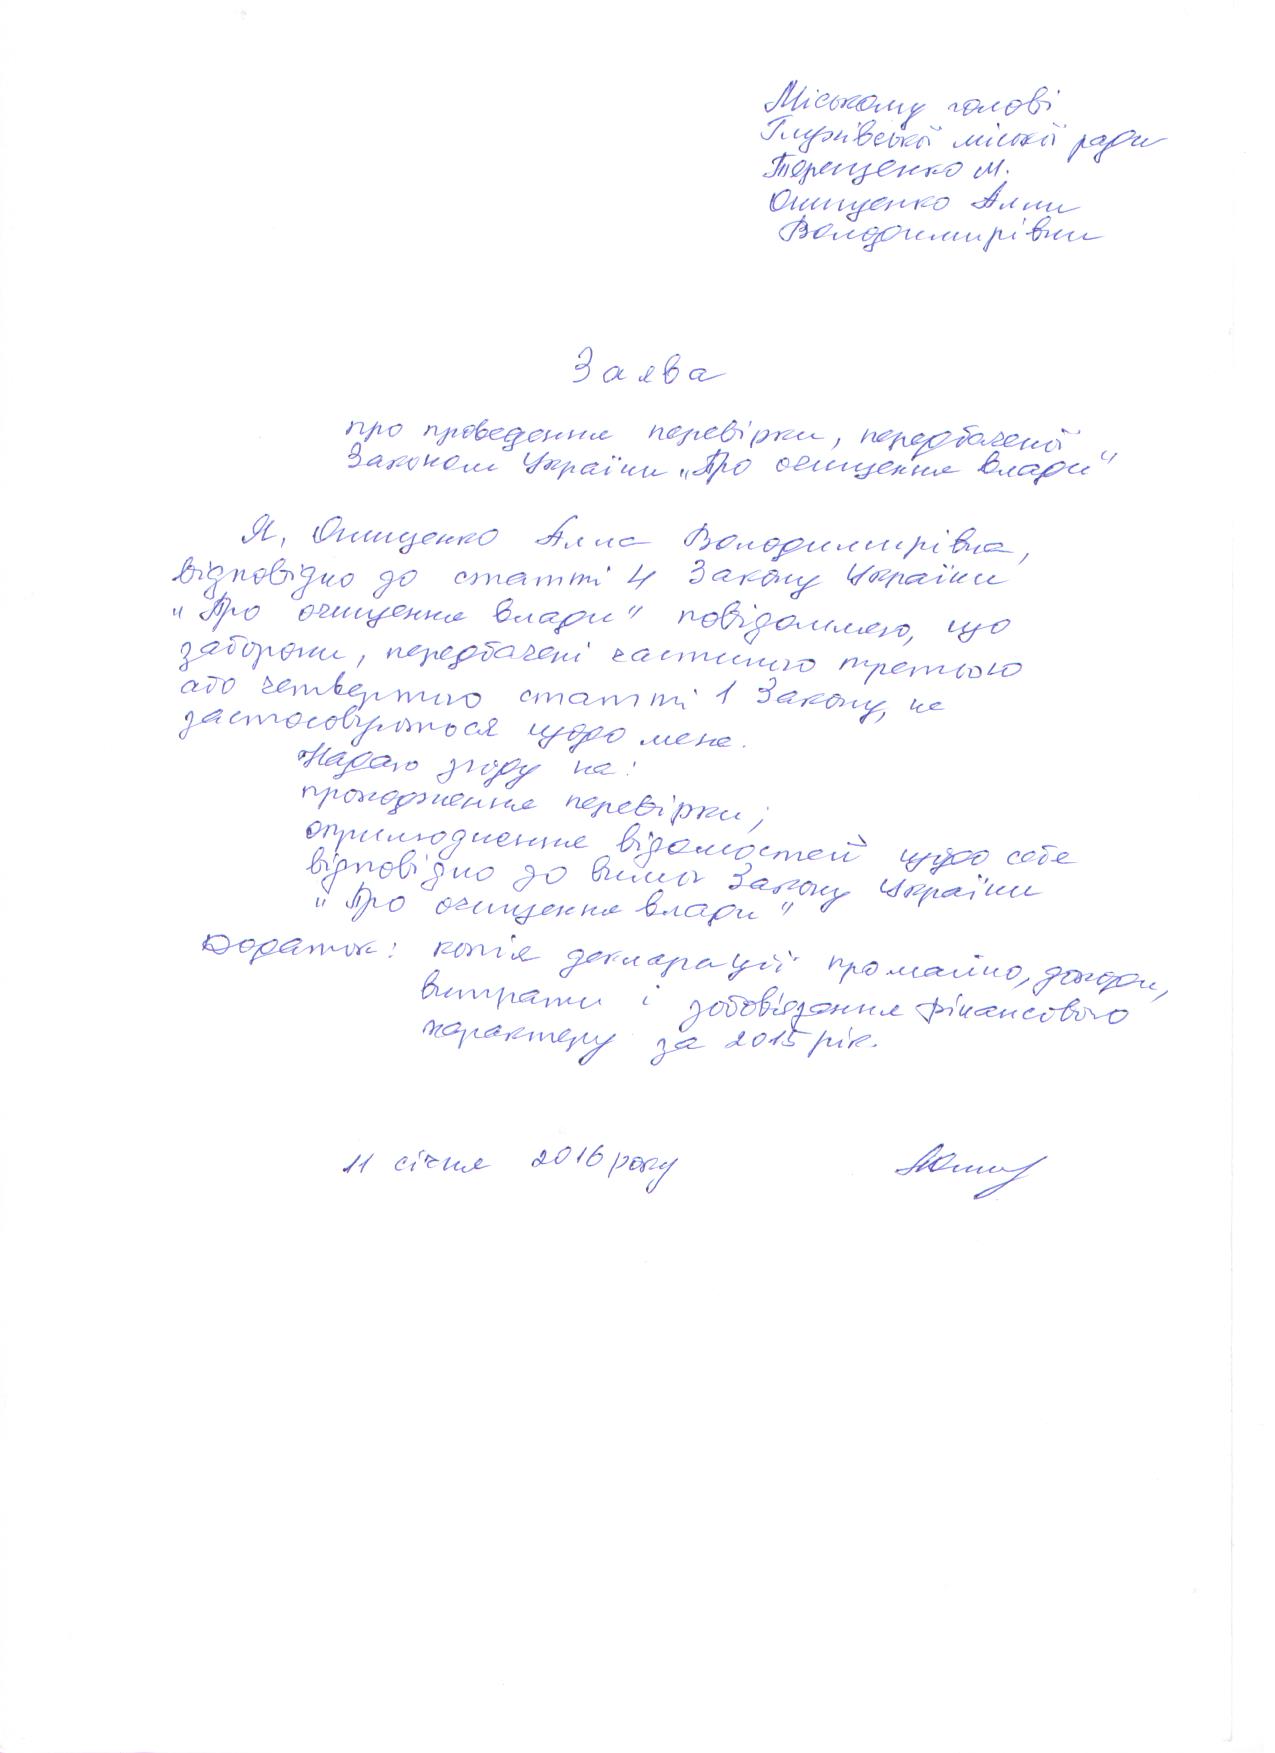 Міському голові
Глухівської міської ради
Терещенко М.
Онищенко Алли
Володимирівни
Заява
про проведення перевірки, передбаченої
Законом України „Про очищення влади"
Я, Онищенко Алла Володимирівна,
відповідно до статті 4 Закону України
„Про очищення влади" повідомляю, що
заборони, передбачені частиною третьою
або четвертою статті 1 Закону, не
застосовуються щодо мене.
Надаю згоду на:
проходження перевірки;
оприлюднення відомостей щодо себе
відповідно до вимог Закону України
„Про очищення влади"
Додаток: копія декларації про майно, доходи,
витрати і зобов'язання фінансового
характеру за 2015 рік.
11 січня 2016 року